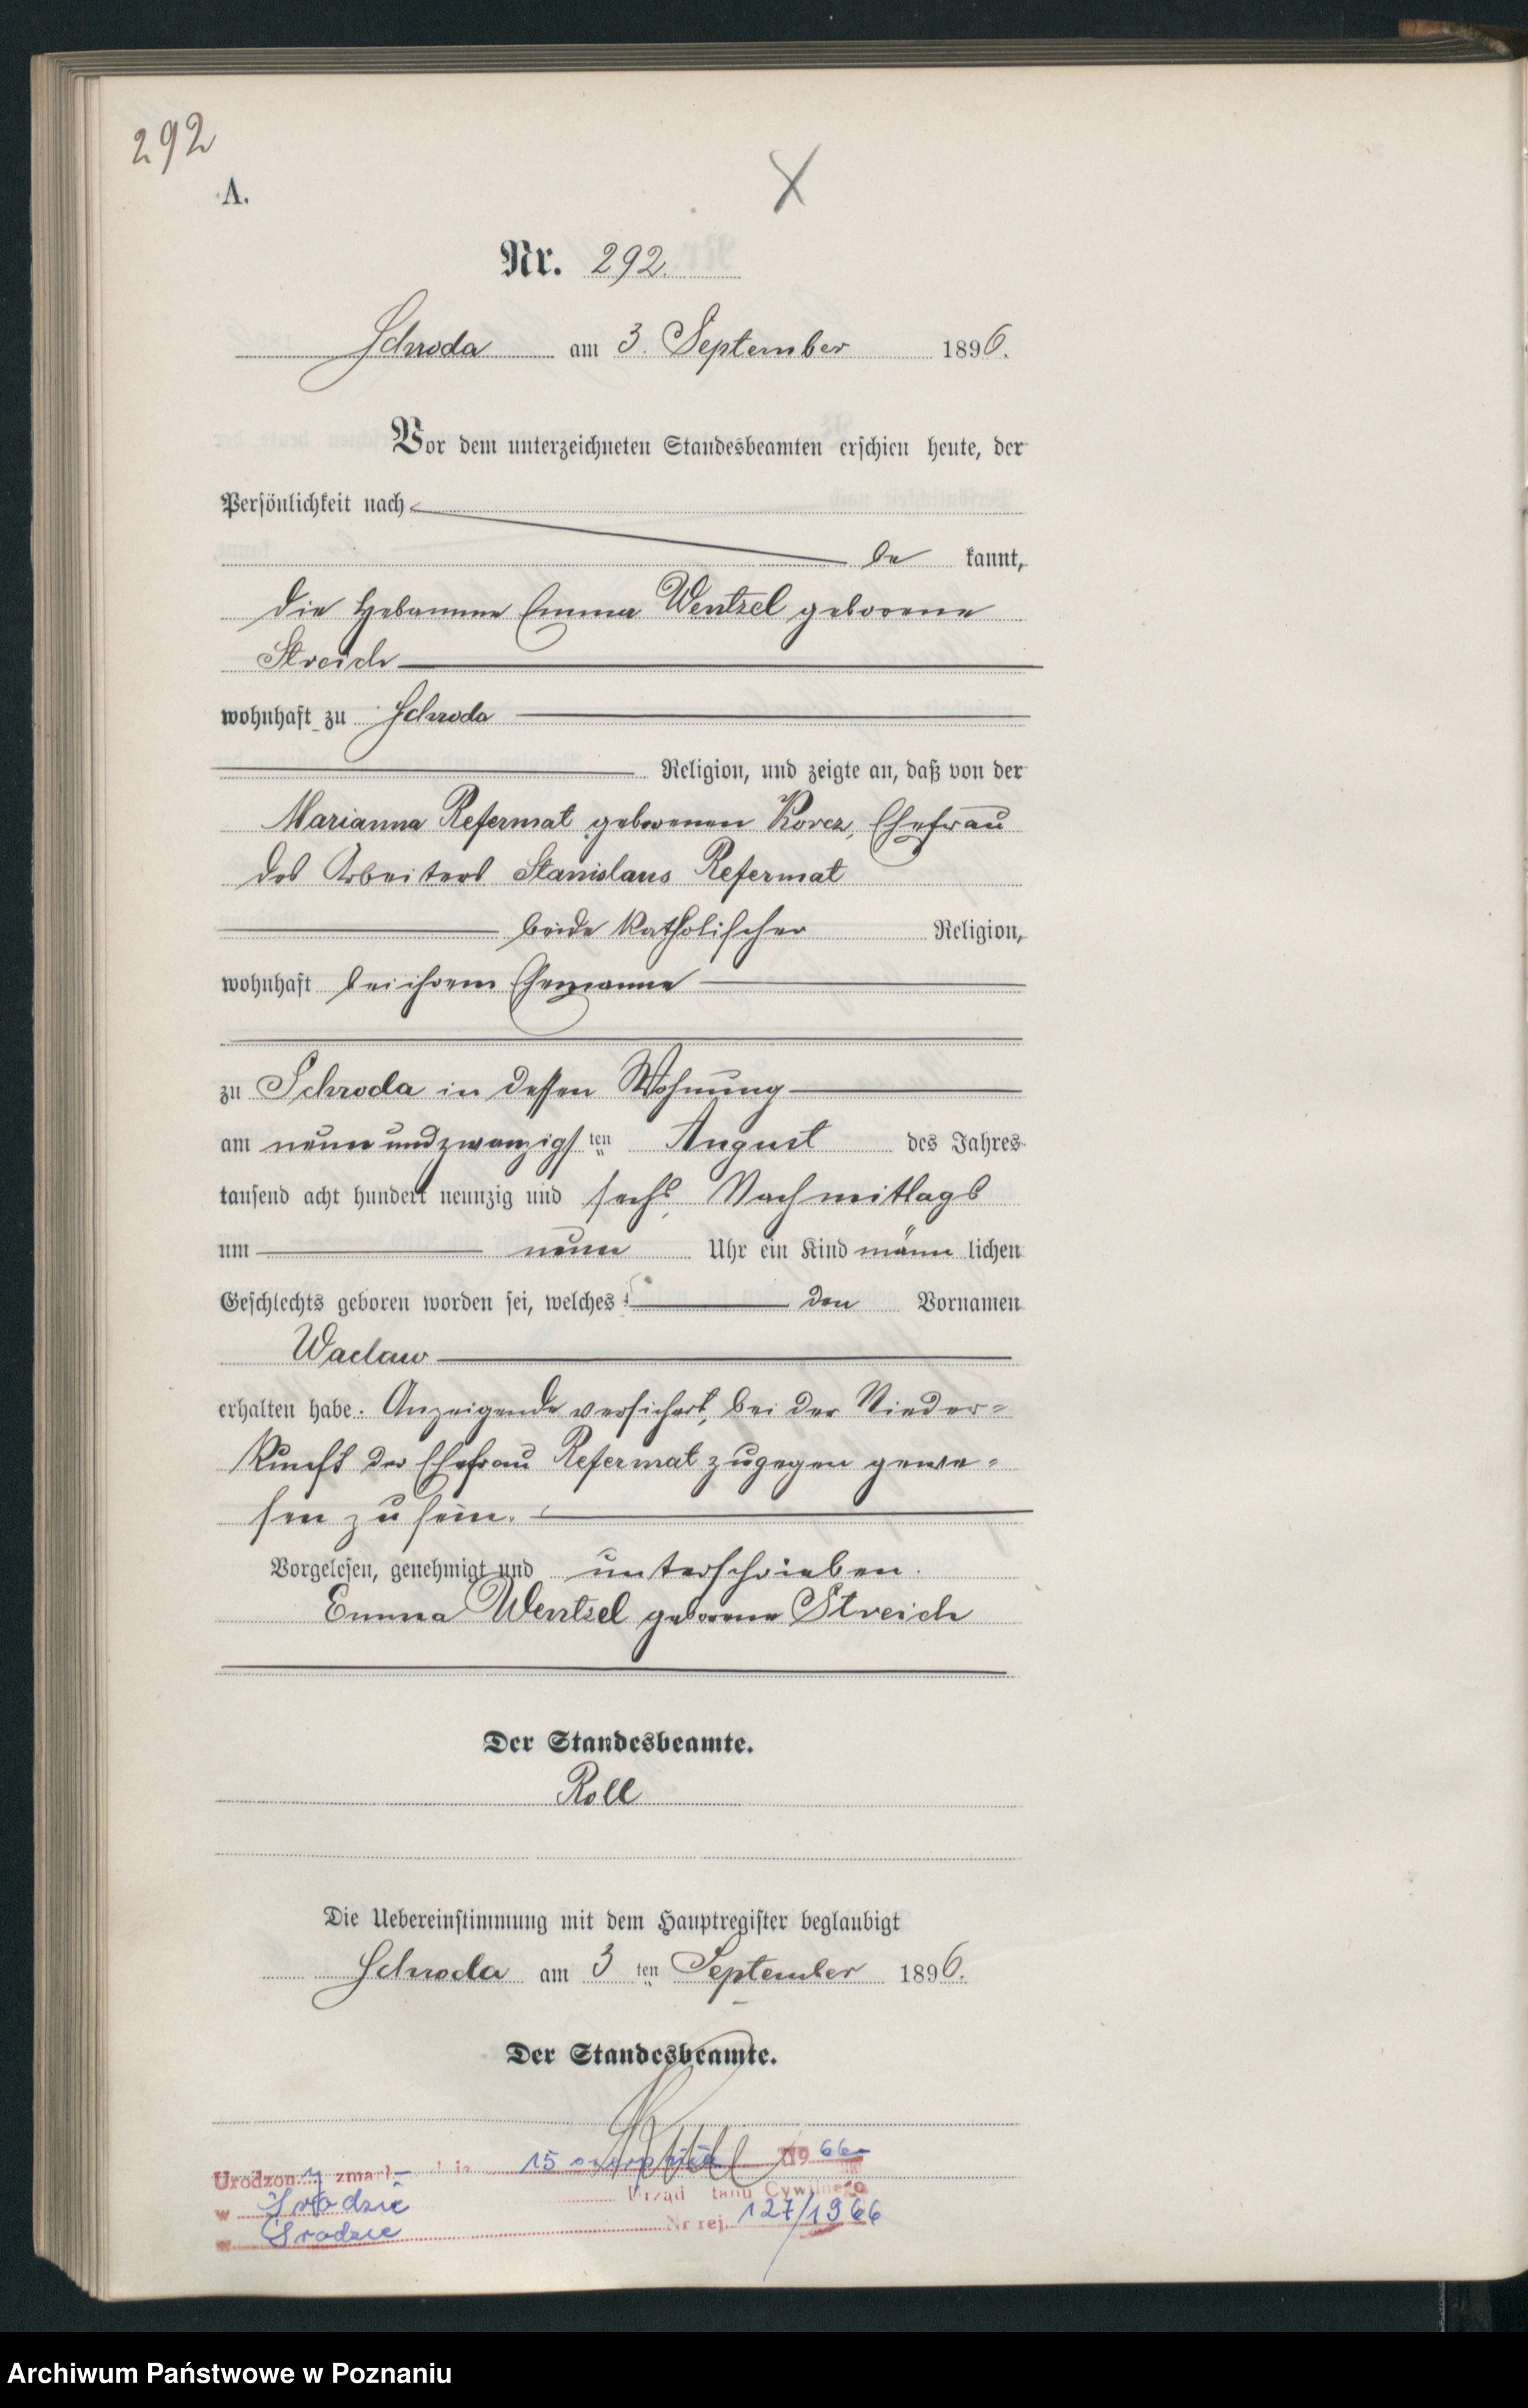 292
A.
X
Nr. 292.
Schroda am 3. September 1896.
Vor dem unterzeichneten Standesbeamten erschien heute, der
Persönlichkeit nach
be kannt,
die Hebamme Emma Wentzel geborene
Streich
wohnhaft zu Schroda
Religion, und zeigte an, daß von der
Marianna Refermat geborenen Korcz, Ehefrau
des Arbeiters Stanislaus Refermat
beide katholischer Religion,
wohnhaft bei ihrem Ehemanne
zu Schroda in dessen Wohnung
am neun und zwanzigs ten August des Jahres
tausend acht hundert neunzig und sechs, Nachmittags
um neun Uhr ein Kind männ lichen
Geschlechts geboren worden sei, welches den Vornamen
Waclaw
erhalten habe. Anzeigende versichert, bei der Nieder=
kunft der Ehefrau Refermat zugegen gewe=
sen zu sein.
Vorgelesen, genehmigt und unterschrieben.
Emma Wentzel geborene Streich
Der Standesbeamte.
Roll
Die Uebereinstimmung mit dem Hauptregister beglaubigt
Schroda am 3 ten September 1896.
Der Standesbeamte.
Roll
Urodzon y zmarł 15 sierpnia 1966
w Środzie Urząd Stanu Cywilnego
w Środzie Nr rej. 127/1966
Archiwum Państwowe w Poznaniu